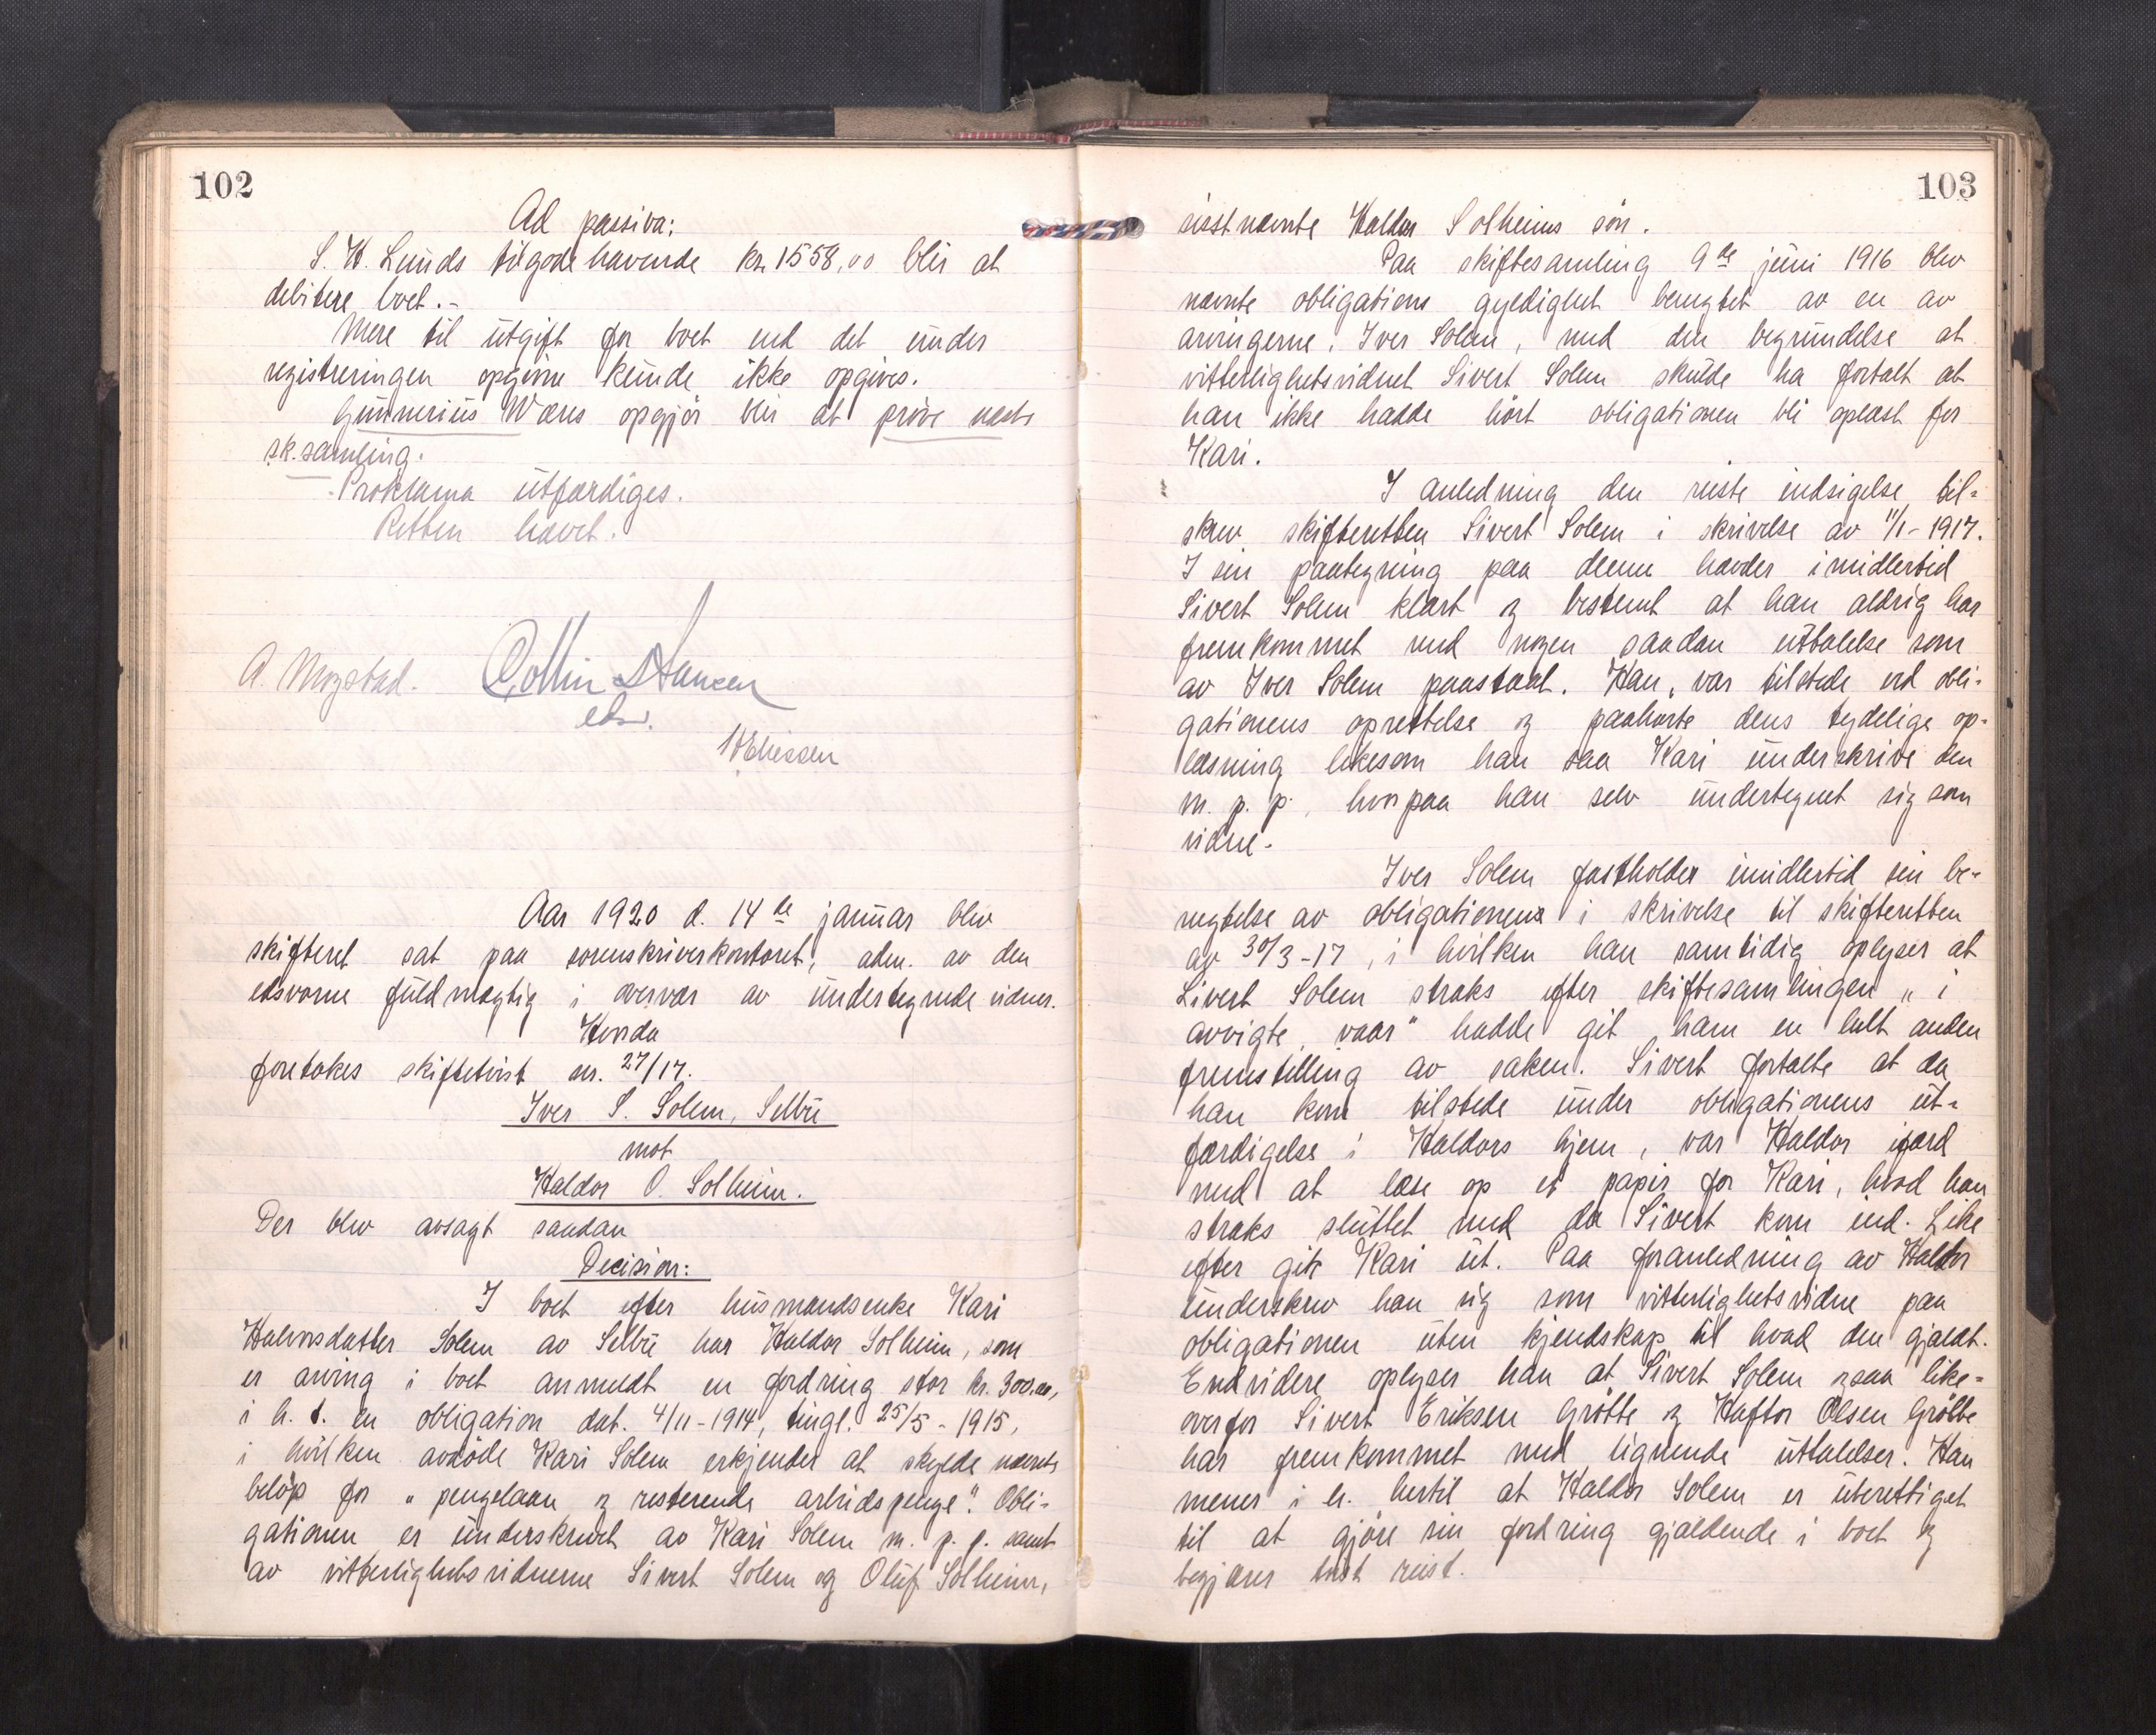 102
Ad passiva:
S. H. Lunds tilgodehavende kr. 1558,00 blir at
debitere boet.-
Mere til utgift for boet end det under
registreringen opgivne kunde ikke opgives.
Gunnerius Wæns opgjør blir at prøve næste
sk.samling.
Proklama utfærdiges.
Retten hævet.
A. Mogstad. Collin Hansen
edsv.
Eliessen
Aar 1920 d. 14de januar blev
skifteret sat paa sorenskriverkontoret, adm. av den
edsvorne fuldmægtig i overvær av undertegnede vidner.
Hvorda
foretokes skiftetvist nr. 27/17.
Iver S. Solem, Selbu
mot
Haldor O. Solheim.
Der blev avsagt saadan
Decision:
I boet efter husmandsenke Kari
Halvorsdatter Solem av Selbu har Haldor Solheim, som
er arving i boet anmeldt en fordring stor kr. 300.00,
i h. t. en obligation dat. 4/11-1914, tingl. 25/5-1915,
i hvilken avdøde Kari Solem erkjender at skylde nævnte
beløp for "pengelaan og resterende arbeidspenge". Obli-
gationen er underskrevet av Kari Solem m. p. p. samt
av vitterlighetsvidnerne Sivert Solem og Oluf Solheim,
103
sisstnævnte Haldor Solheims søn.
Paa skiftesamling 9de juni 1916 blev
nævnte obligations gyldighet benegtet av en av
arvingerne, Iver Solem, med den begrundelse at
vitterlighetsvidnet Sivert Solem skulde ha fortalt at
han ikke hadde hørt obligationen bli oplæst for
Kari.
I anledning den reiste indsigelse til-
skrev skifteretten Sivert Solem i skrivelse av 11/1-1917.
I sin paategning paa denne hævder imidlertid
Sivert Solem klart og bestemt at han aldrig har
fremkommet med nogen saadan uttalelse som
av Iver Solem paastaat. Han var tilstede ved obli-
gationens oprettelse og paahørte dens tydelige op-
læsning likesom han saa Kari underskrive den
m. p. p., hvorpaa han selv undertegnet sig som
vidne.
Iver Solem fastholder imidlertid sin be-
negtelse av obligationen i skrivelse til skifteretten
av 30/3-17, i hvilken han samtidig oplyser at
Sivert Solem straks efter skiftesamlingen "i
avvigte vaar" hadde git ham en helt anden
fremstilling av saken. Sivert fortalte at da
han kom tilstede under obligationens ut-
færdigelse i Haldors hjem, var Haldor ifærd
med at læse op et papir for Kari, hvad han
straks sluttet med da Sivert kom ind. Like
efter gik Kari ut. Paa foranledning av Haldor
underskrev han sig som vitterlighetsvidne paa
obligationen uten kjendskap til hvad den gjældt.
Endvidere oplyser han at Sivert Solem ogsaa like-
overfor Sivert Eriksen Grøtte og Haftor Olsen Grøtte
har fremkommet med lignende uttalelser. Han
mener i h. hertil at Haldor Solem er uberettiget
til at gjøre sin fordring gjældende i boet og
begjærer tvist reist.